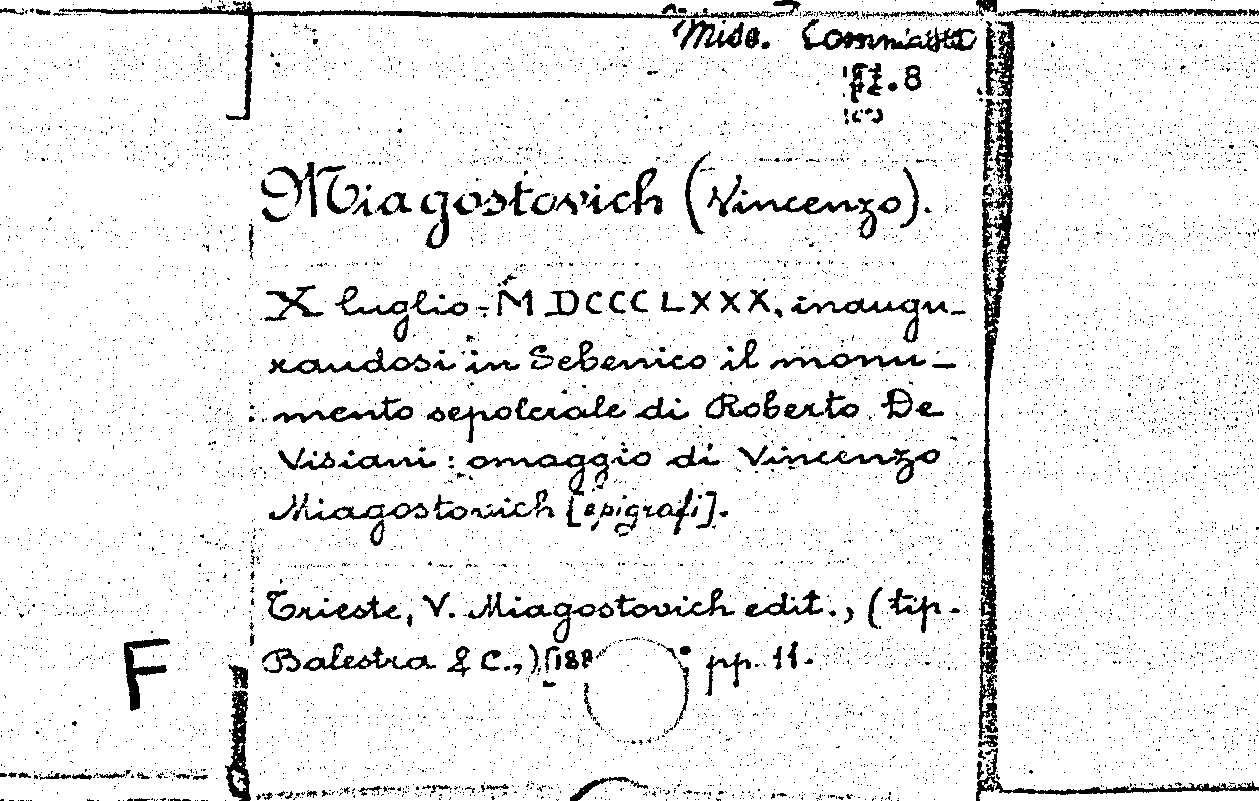 Misc.
pz. 8
Miagostovich (Vincenzo).
X luglio - MDCCCLXXX, inaugu-
randosi in Sebenico il monu-
mento sepolcrale di Roberto De
Visiani: omaggio di Vincenzo
Miagostovich [epigrafi].
Trieste, V. Miagostovich edit., (tip.
Balestra & C.,) [188 pp. 11.
F